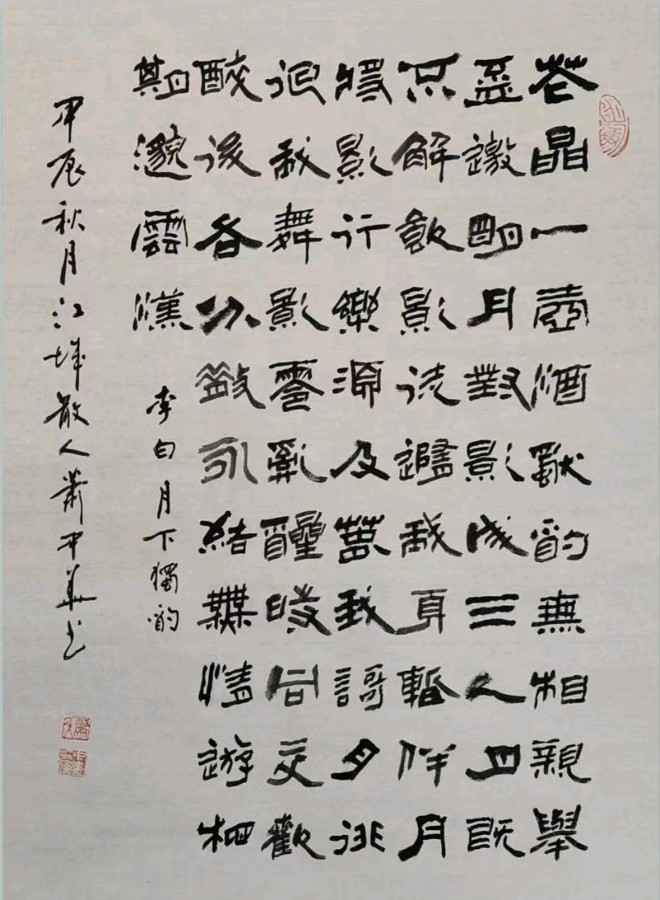 花晶一壺酒獨酌無相親舉
盃邀明月對影成三人月既
不解飲影徒隨我身暫伴月
將影行樂須及春我謌月徘
徊我舞影零亂醒時同交歡
醉後各分散永結無情遊相
期邈雲漢
李白月下獨酌
甲辰秋月江城散人蕭中華书